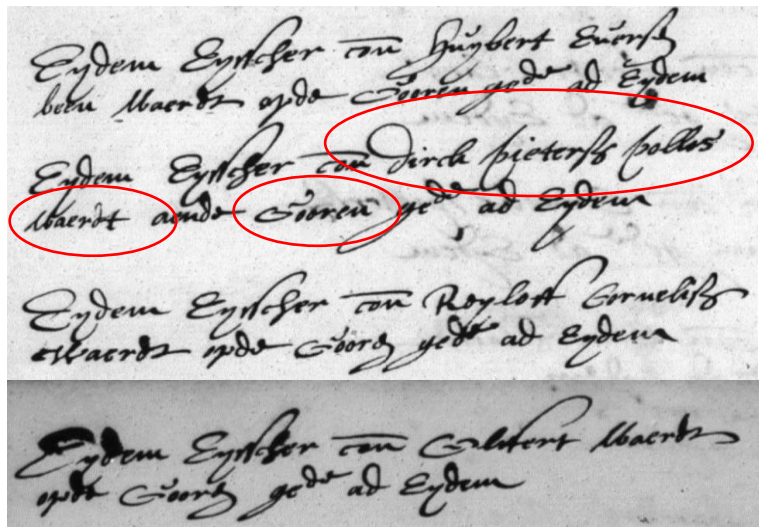 Eydem Eysscher con Huybert Everss
been Waerdt opde Gooren gedt ad Eydem
Eydem Eysscher con dirck pieterss pollos
Waerdt aende Gooren gedt ad Eydem
Eydem Eysscher con Reyloff Corneliss
Waerdt opde Goore gedt ad Eydem
Eydem Eysscher con Waerdt
opde Goore gedt ad Eydem